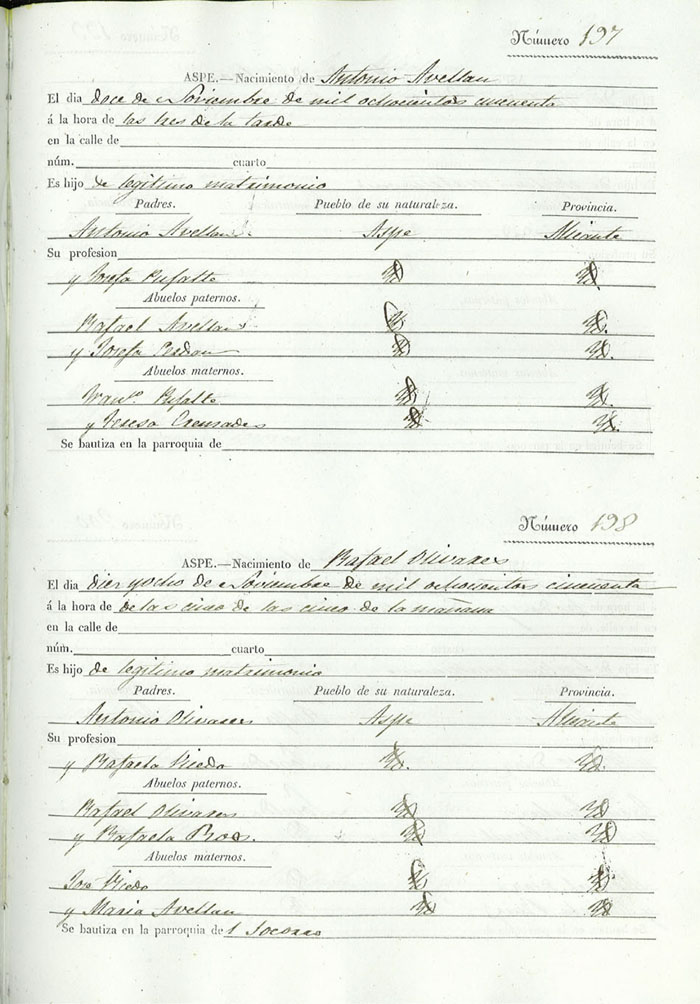 Número 197
ASPE.—Nacimiento de Antonio Avellan
El dia doce de Noviembre de mil ochocientos cincuenta
á la hora de las tres de la tarde
en la calle de
núm. cuarto
Es hijo de legitimo matrimonio
Padres. Pueblo de su naturaleza. Provincia.
Antonio Avellan Aspe Alicante
Su profesion
y Josefa Pufalte Yd Yd.
Abuelos paternos.
Rafael Avellan Yd Yd.
y Josefa Yd Yd.
Abuelos maternos.
Franco. Pufalte Yd Yd.
y Teresa Cremades Yd Yd.
Se bautiza en la parroquia de
Número 198
ASPE.—Nacimiento de Rafael Olivares
El dia diez y ocho de Noviembre de mil ochocientos cincuenta
á la hora de de las cinco de las cinco de la mañana
en la calle de
núm. cuarto
Es hijo de legitimo matrimonio
Padres. Pueblo de su naturaleza. Provincia.
Antonio Olivares Aspe Alicante
Su profesion
y Rafaela Yd. Yd.
Abuelos paternos.
Rafael Olivares Yd Yd
y Rafaela Yd Yd
Abuelos maternos.
Jose Yd Yd
y Maria Avellan Yd Yd
Se bautiza en la parroquia de l Socorro